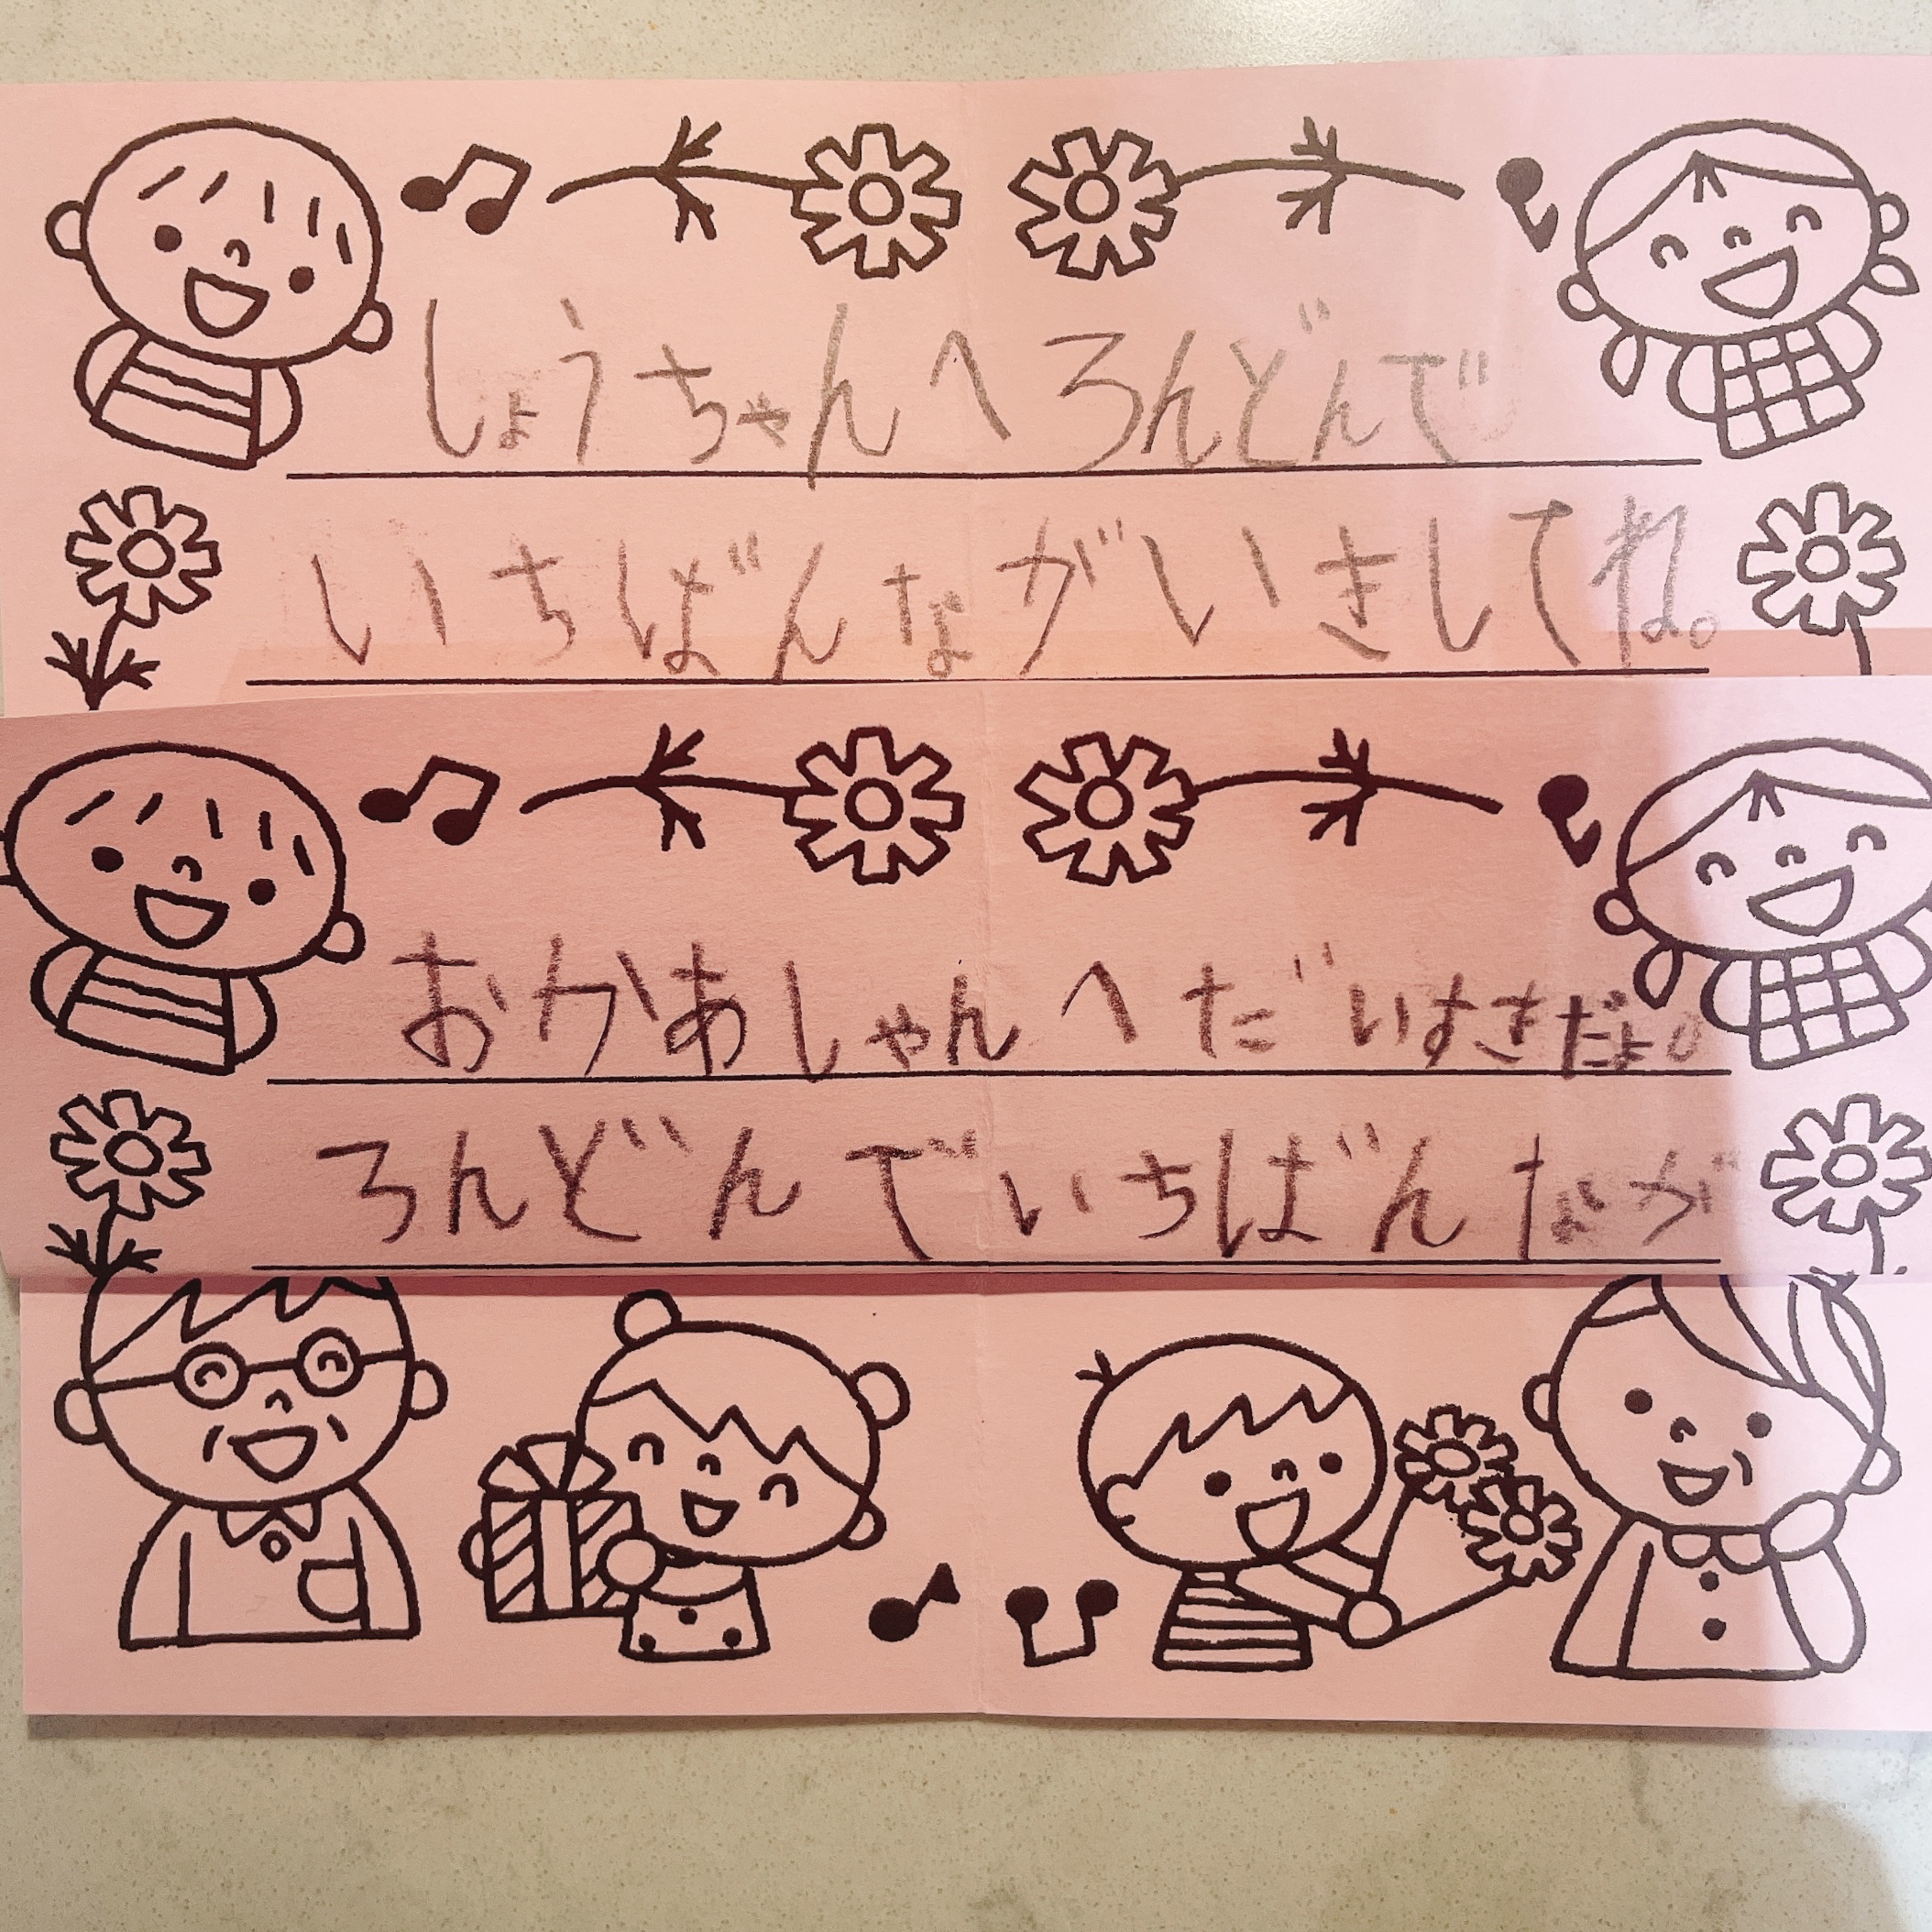 しょうちゃんへ ろんどんで
いちばんながいきしてね。
おかあしゃんへ だいすきだよ。
ろんどんでいちばんなが